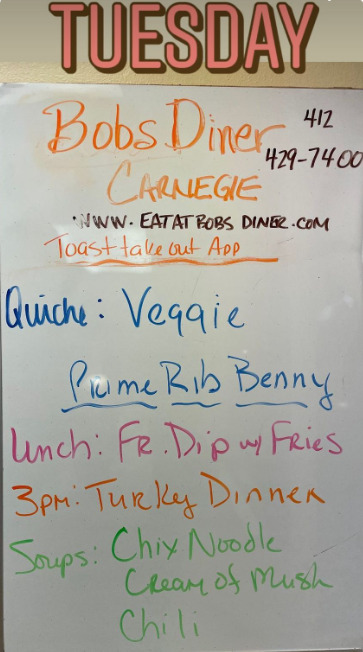 TUESDAY
Bobs Diner
412
429-7400
CARNEGIE
WWW.EATATBOBSDINER.COM
Toast take out App
Quiche: Veggie
Prime Rib Benny
Lunch: FR. Dip w/ Fries
3pm: Turky Dinner
Soups: Chix Noodle
Cream of Mush
Chili